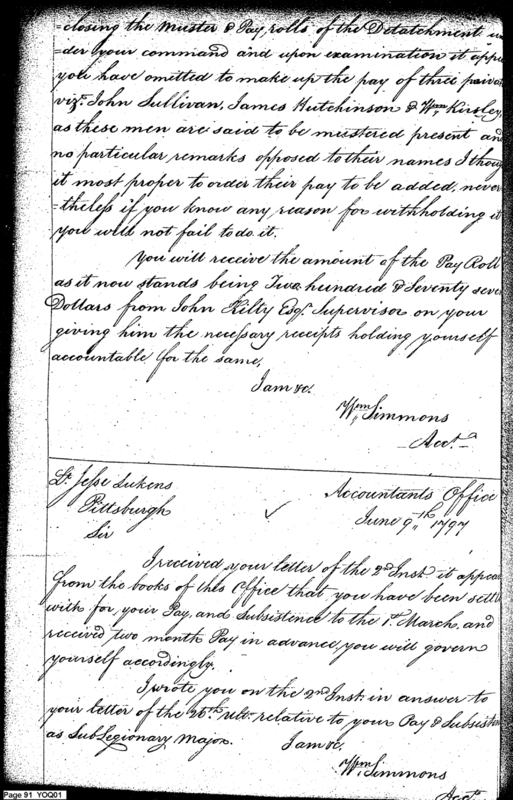 =closing the Muster & Pay, rolls of the Detatchment un
=der your command and upon examination it appe
you have omitted to make up the pay of three privat
vizt. John Sullivan, James Hutchinson & Wm. Kirsley,
as these men are said to be mustered present and
no particular remarks opposed to their names I thoug
it most proper to order their pay to be added, never
=theless if you know any reason for withholding it
you will not fail to do it.
You will receive the amount of the Pay Roll
as it now stands being Two hundred & Seventy seven
Dollars from John Kilty Esqr. Supervisor on your
giving him the necessary receipts holding yourself
accountable for the same,
I am &c.
Wm. Simmons
Acct.
Lt. Jesse Lukens
Accountants Office
Pittsburgh
June 9th. 1797
Sir
I received your letter of the 2d. Inst. it appea
from the books of this Office that you have been settl
with for, your Pay, and Subsistence to the 1st. March, and
received two month Pay in advance, you will govern
yourself accordingly.
I wrote you on the 2nd Inst. in answer to
your letter of the 26th. ult. relative to your Pay & Subsist
as Sub Legionary Major. I am &c.
Wm. Simmons
Acct.
Page 91 YOQ01